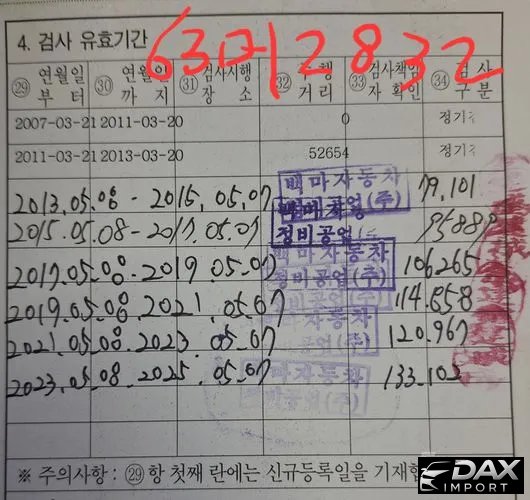 4. 검사 유효기간
63머2832
㉙ 연월일부터 ㉚ 연월일까지 ㉛ 검사시행장소 ㉜ 주행거리 ㉝ 검사책임자확인 ㉞ 검사구분
2007-03-21 2011-03-20 0 정기
2011-03-21 2013-03-20 52654 정기
2013.05.08 - 2015.05.07 백마자동차 79,101
정비공업(주)
2015.05.08 - 2017.05.07 정비공업
2017.05.08 - 2019.05.07 백마자동차 106265
정비공업(주)
2019.05.08 2021.05.07 114.858
2021.05.08 2023.05.07 자동차 120.967
공업(주)
2023.05.08 - 2025.05.07 마자동차 133.102
(주)
※ 주의사항 : ㉙항 첫째 란에는 신규등록일을 기재
DAX
IMPORT